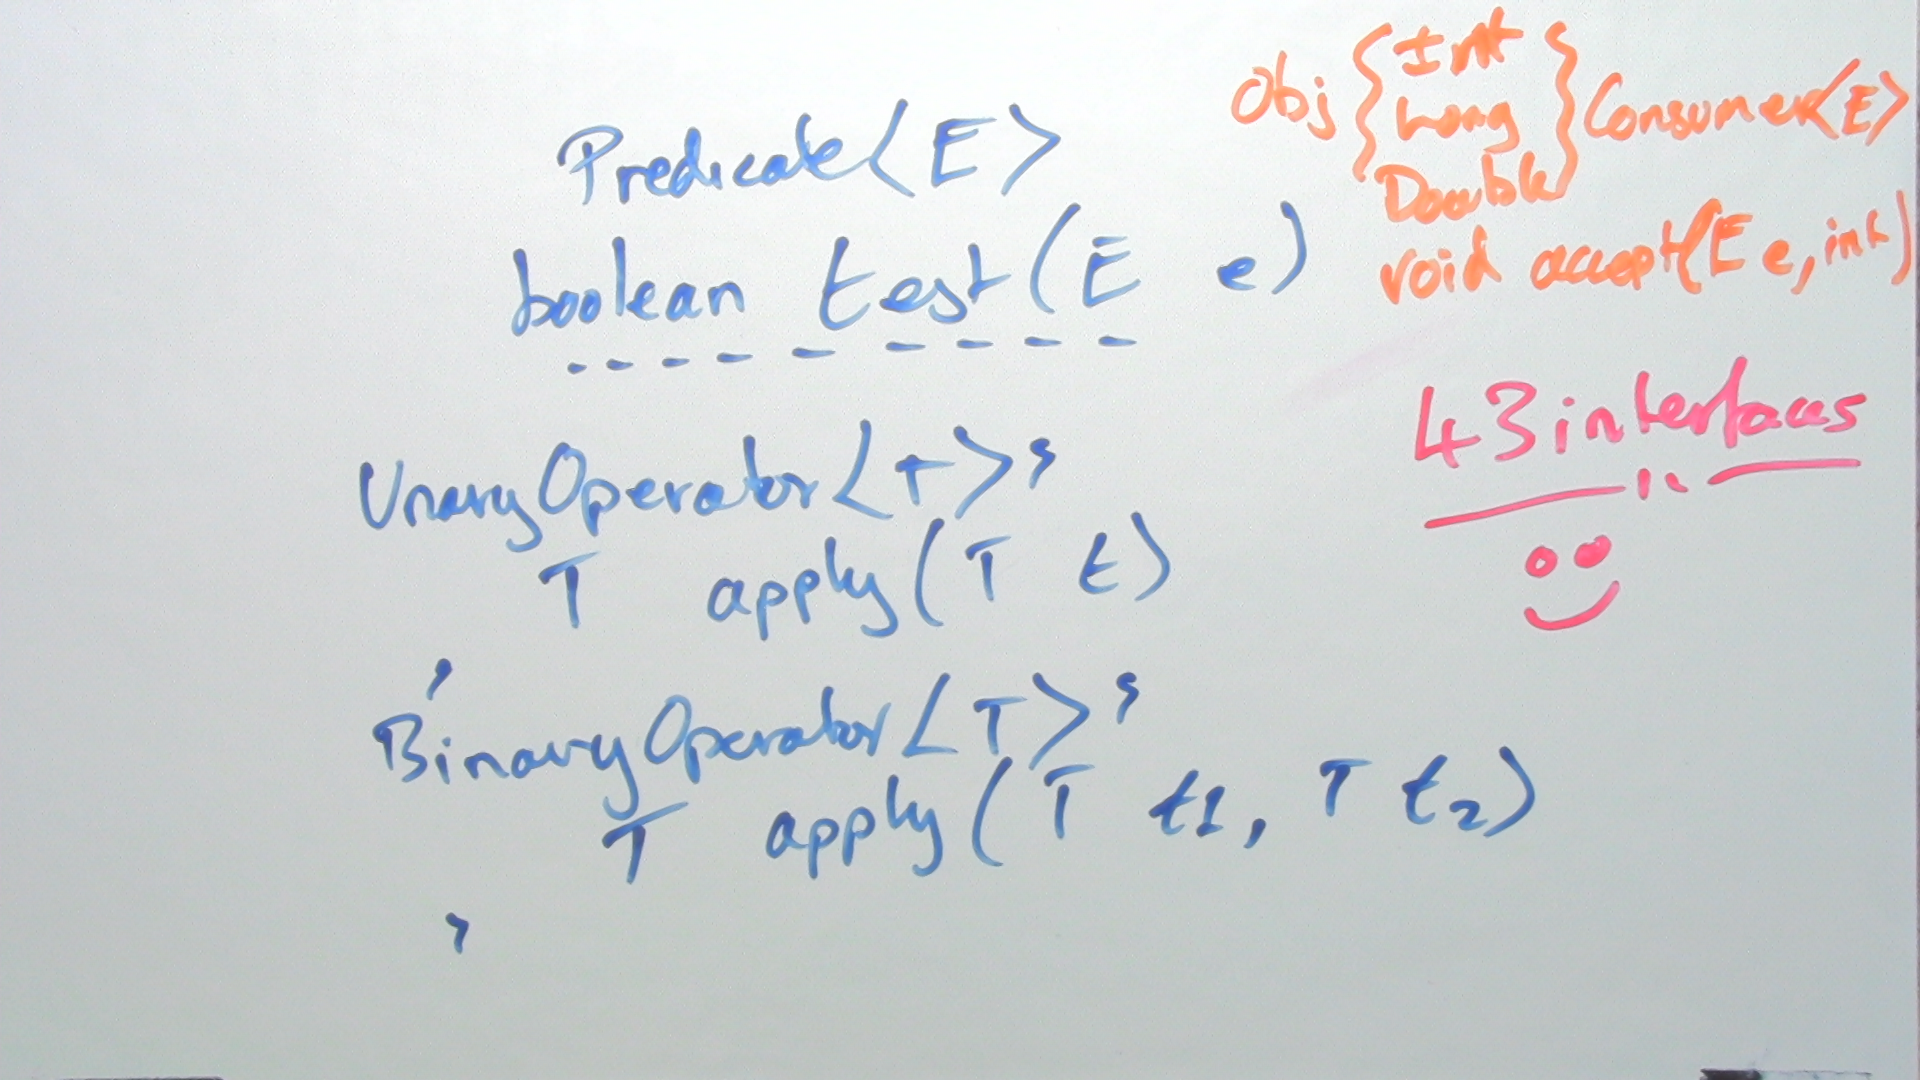 Predicate<E>
boolean test(E e)
UnaryOperator<T>
T apply(T t)
BinaryOperator<T>
T apply(T t1, T t2)
Obj { Int Long Double } Consumer<E>
void accept(E e, int)
43 interfaces